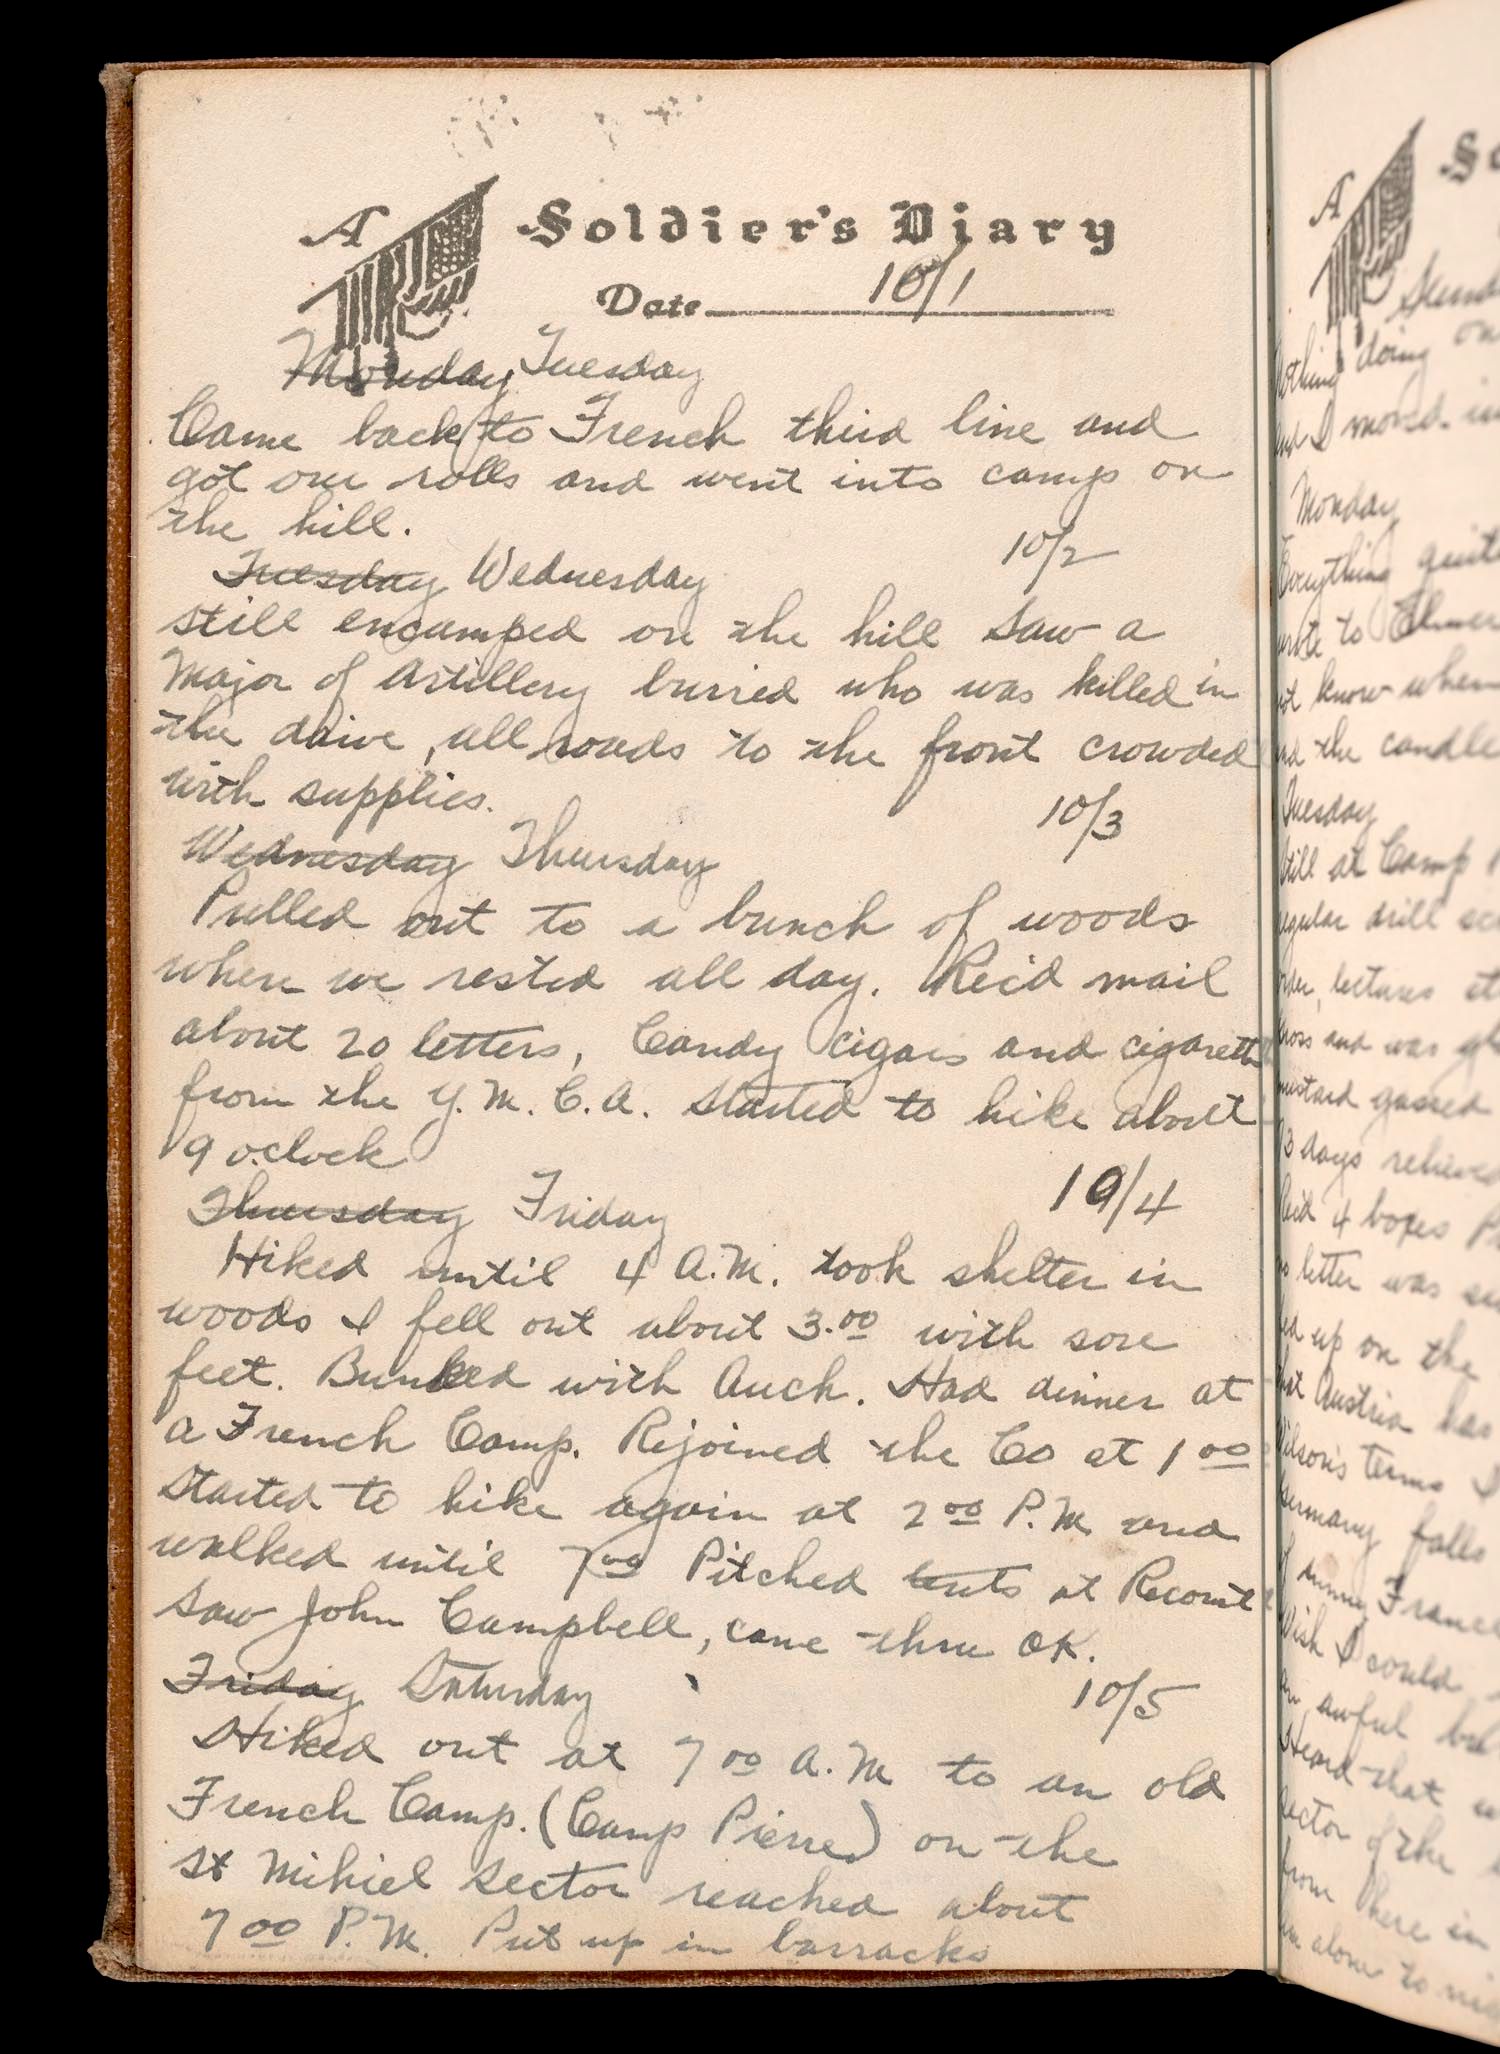 A Soldier's Diary
Date 10/1
Monday Tuesday
Came back to French third line and
got our rolls and went into camp on
the hill.
10/2
Tuesday Wednesday
still encamped on the hill saw a
Major of Artillery burried who was killed in
the drive, all roads to the front crowded
with supplies.
10/3
Wednesday Thursday
Pulled out to a bunch of woods
where we rested all day. Rec'd mail
about 20 letters, Candy cigars and cigaretts
from the Y.M.C.A. started to hike about
9 o.clock
10/4
Thursday Friday
Hiked until 4 A.M. took shelter in
woods I fell out about 3.00 with sore
feet. Bunked with Auch. Had dinner at
a French Camp. Rejoined the Co at 1 00
started to hike again at 2 00 P.M. and
walked until 7 00 Pitched tents at Recourt
saw John Campbell, came thru OK.
10/5
Friday Saturday
Hiked out at 7 00 A.M to an old
French Camp. (Camp Pierre) on the
St Mihiel sector reached about
7 00 P.M. Put up in barracks
A
Monday
Everything
to Elmer
know when
the candle
Tuesday
still at Camp
drill
lectures
and was
gassed
days relieved
4 boxes
letter was
up on the
Austria has
Wilson's terms I
Germany falls
France
Wish I could
an awful
Heard that
sector of the
from here in
alone to